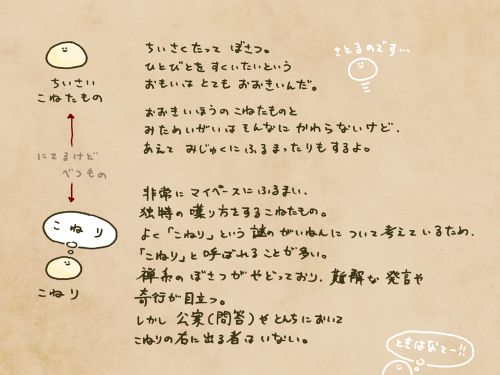 ちいさくたって ぼさつ。
ひとびとを すくいたいという
おもいは とても おおきいんだ。
さとるのです…
ちいさい
こねたもの
おおきいほうの こねたものと
みためいがいは そんなに かわらないけど、
あえて みじゅくに ふるまったりもするよ。
にてるけど
べつもの
非常に マイペースに ふるまい、
独特の 喋り方をする こねたもの。
よく「こねり」という 謎の がいねんに ついて 考えているため、
「こねり」と 呼ばれることが 多い。
禅系の ぼさつが やどっており、難解な 発言や
奇行が 目立つ。
しかし 公案(問答)や とんちにおいて
こねりの 右に 出る者は いない。
こねり
こねり
ときはなて〜!!